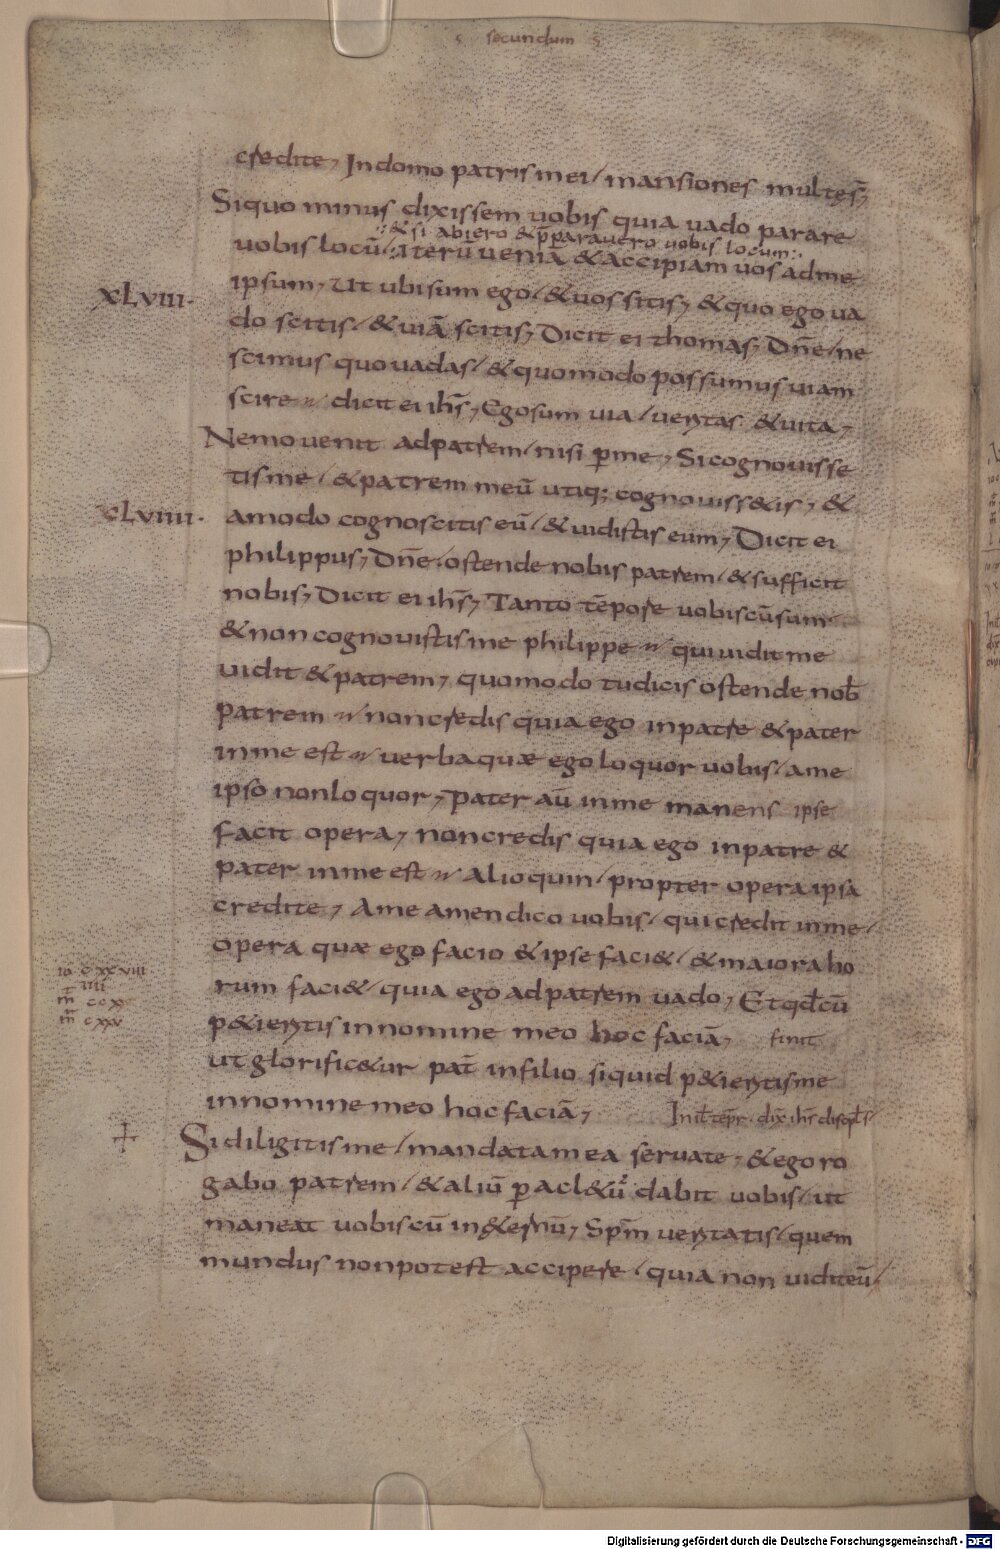 secundum
credite, In domo patris mei / mansiones multe s̄,
Siquo minus dixissem uobis quia uado parare
& si abiero & p̄parauero uobis locum
uobis locū / Iterū ueniā & accipiam uos ad me
XLVIII· ipsum, Ut ubi sum ego / & uos sitis, & quo ego ua
do scitis / & uiā scitis, Dicit ei thomas, Dn̄e / ne
scimus quo uadas / & quomodo possumus uiam
scire dicit ei ih̄s, Ego sum uia / ueritas & uita,
Nemo uenit ad patrem / nisi p̲ me, Si cognouisse
tis me / & patrem meū utiq; cognouiss&is, &
XLVIIII· amodo cognoscitis eū / & uidistis eum, Dicit ei
philippus, Dn̄e / ostende nobis patrem / & sufficit
nobis, Dicit ei ih̄s, Tanto tēpore uobiscū sum
& non cognouistis me philippe qui uidit me
uidit & patrem, quomodo tu dicis ostende nob̄
patrem non credis quia ego in patre & pater
in me est uerba quæ ego loquor uobis / a me
ipso non loquor, pater aū in me manens ipse
facit opera, non credis quia ego in patre &
pater in me est Alioquin / propter opera ipsa
credite, Ame amen dico uobis / qui credit in me /
opera quæ ego facio & ipse faci& / & maiora ho
io cxxviii
iiii
rum faci& / quia ego ad patrem uado, Et qd̄cū
m̄ ccx
m̄ cxxv
p&ieritis in nomine meo hoc faciā, finit
ut glorific&ur pat̄ in filio si quid p&ieritis me
in nomine meo hoc faciā, In il̄ tēpr. dix̄ ih̄s discipl̄s
Si diligitis me / mandata mea seruate, & ego ro
gabo patrem / & aliū paracl&ū dabit uobis / ut
maneat uobiscū in &ernū, Sp̄m ueritatis / quem
mundus non potest accipere / quia non uidit eū /
Digitalisierung gefördert durch die Deutsche Forschungsgemeinschaft - DFG